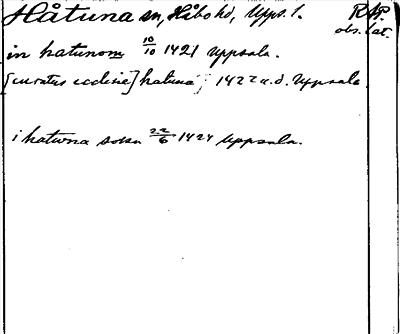 Håtuna sn, Håbo hd, Upps. l. RAP.
obs. lat.
in hatunom 10/10 1421 Uppsala.
[curatus ecclesie] hatuna, 1422 u.d. Uppsala.
i hatuna sokn 22/6 1424 Uppsala.